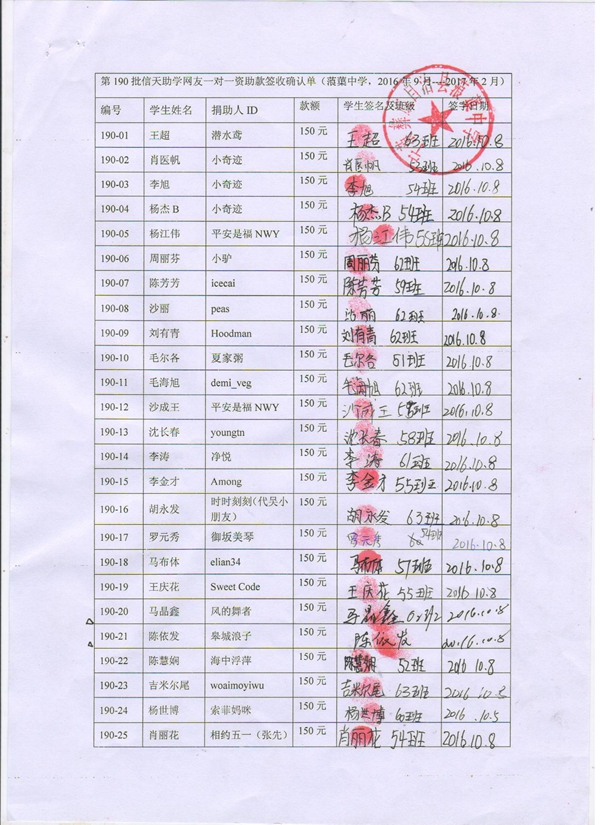 第 190 批信天助学网友一对一资助款签收确认单（菠萝中学，2016 年 9 月---2017 年 2 月）
编号 学生姓名 捐助人 ID 款额 学生签名及班级 签字日期
190-01 王超 潜水鸢 150 元 王超 63班 2016.10.8
190-02 肖医帆 小奇迹 150 元 肖医帆 52班 2016.10.8
190-03 李旭 小奇迹 150 元 李旭 54班 2016.10.8
190-04 杨杰 B 小奇迹 150 元 杨杰B 54班 2016.10.8
190-05 杨江伟 平安是福 NWY 150 元 杨江伟 55班 2016.10.8
190-06 周丽芬 小驴 150 元 周丽芬 62班 2016.10.8
190-07 陈芳芳 iceeai 150 元 陈芳芳 59班 2016.10.8
190-08 沙丽 peas 150 元 沙丽 62班 2016.10.8
190-09 刘有青 Hoodman 150 元 刘有青 62班 2016.10.8
190-10 毛尔各 夏家粥 150 元 毛尔各 51班 2016.10.8
190-11 毛海旭 demi_veg 150 元 毛海旭 62班 2016.10.8
190-12 沙成王 平安是福 NWY 150 元 沙成王 2016.10.8
190-13 沈长春 youngtn 150 元 沈长春 58班 2016.10.8
190-14 李涛 净悦 150 元 李涛 61班 2016.10.8
190-15 李金才 Among 150 元 李金才 55班 2016.10.8
190-16 胡永发 时时刻刻（代吴小朋友） 150 元 胡永发 63班 2016.10.8
190-17 罗元秀 御坂美琴 150 元 罗元秀 54班 2016.10.8
190-18 马布体 elian34 150 元 马布体 51班 2016.10.8
190-19 王庆花 Sweet Code 150 元 王庆花 55班 2016.10.8
190-20 马晶鑫 风的舞者 150 元 马晶鑫 2016.10.8
190-21 陈依发 皋城浪子 150 元 陈依发 2016.10.8
190-22 陈慧娴 海中浮萍 150 元 陈慧娴 52班 2016 10.8
190-23 吉米尔尾 woaimoyiwu 150 元 吉米尔尾 63班 2016 10.8
190-24 杨世博 索菲妈咪 150 元 杨世博 60班 2016.10.5
190-25 肖丽花 相约五一（张先） 150 元 肖丽花 54班 2016.10.8